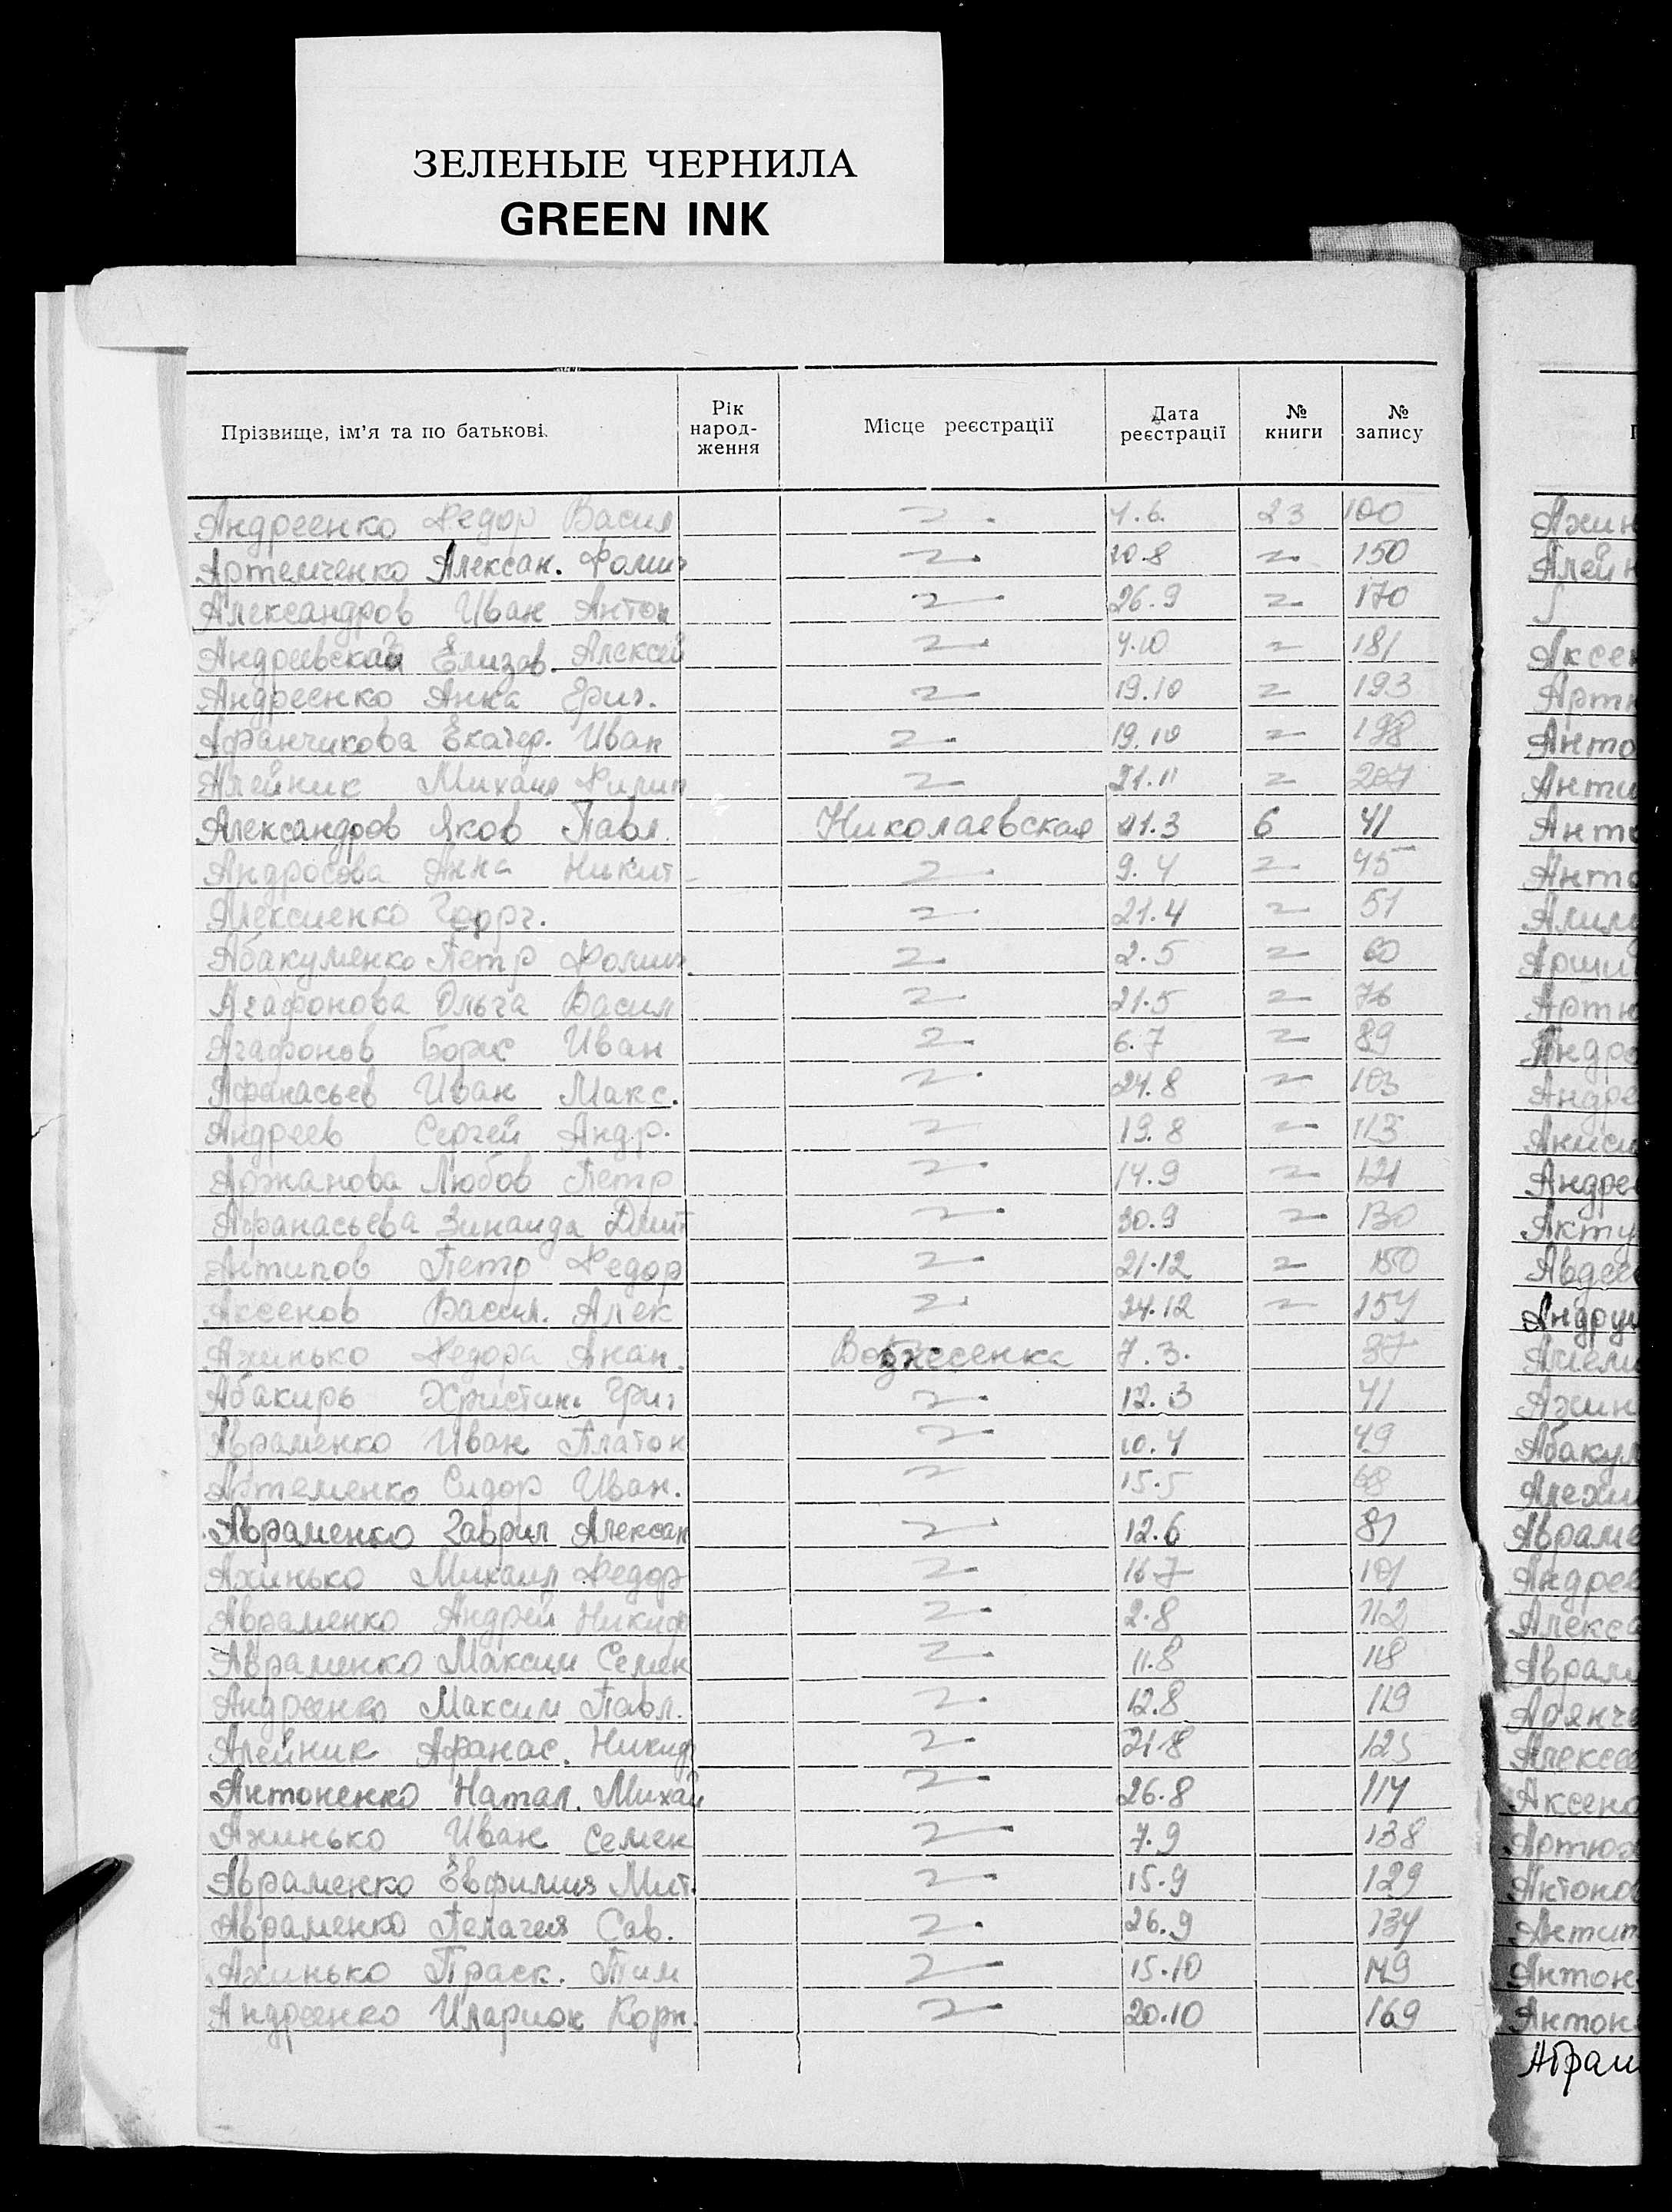 ЗЕЛЕНЫЕ ЧЕРНИЛА
GREEN INK
Прізвище, ім'я та по батькові. Рік народ- ження Місце реєстрації Дата реєстрації № книги № запису
Андреенко Федор Васил 〃 7.6. 23 100
Артемченко Алексан. Фомич 〃 20.8 〃 150
Александров Иван Антон 〃 26.9 〃 170
Андреевская Елизав. Алексей 〃 7.10 〃 181
Андреенко Анна Григ. 〃 19.10 〃 193
Афанчикова Екатер. Иван 〃 19.10 〃 198
Алейник Михаил Филип 〃 21.11 〃 207
Александров Яков Павл. Николаевская 21.3 6 41
Андросова Анна Никит 〃 9.4 〃 45
Алексиенко Георг. 〃 21.4 〃 51
Абакуменко Петр Фомич. 〃 2.5 〃 60
Агафонова Ольга Васил 〃 21.5 〃 76
Агафонов Борис Иван 〃 6.7 〃 89
Афанасьев Иван Макс. 〃 24.8 〃 103
Андреев Сергей Андр. 〃 19.8 〃 113
Аржанова Любов Петр 〃 14.9 〃 121
Афанасьева Зинаида Дмит 〃 30.9 〃 130
Антипов Петр Федор 〃 21.12 〃 150
Аксенов Васил. Алек 〃 24.12 〃 154
Ахинько Федора Анан. Вознесенка 7.3. 37
Абакирь Христин. Григ 〃 12.3 41
Авраменко Иван Платон 〃 10.4 49
Артеменко Сидор Иван. 〃 15.5 68
Авраменко Гаврил Алексан 〃 12.6 81
Ахинько Михаил Федор 〃 16.7 101
Авраменко Андрей Никиф 〃 2.8 112
Авраменко Максим Семен 〃 11.8 118
Андреенко Максим Павл. 〃 12.8 119
Алейник Афанас. Никиф 〃 21.8 125
Антоненко Натал. Михай 〃 26.8 114
Ахинько Иван Семен 〃 7.9 138
Авраменко Евфимия Мит. 〃 15.9 129
Авраменко Пелагея Сав. 〃 26.9 134
Ахинько Праск. Тим 〃 15.10 149
Андреенко Иларион Корн. 〃 20.10 169